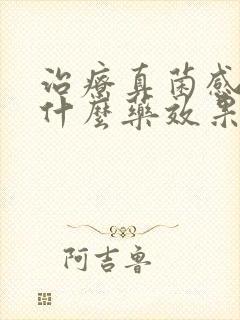 治療真菌感
什麼藥效果
阿吉魯